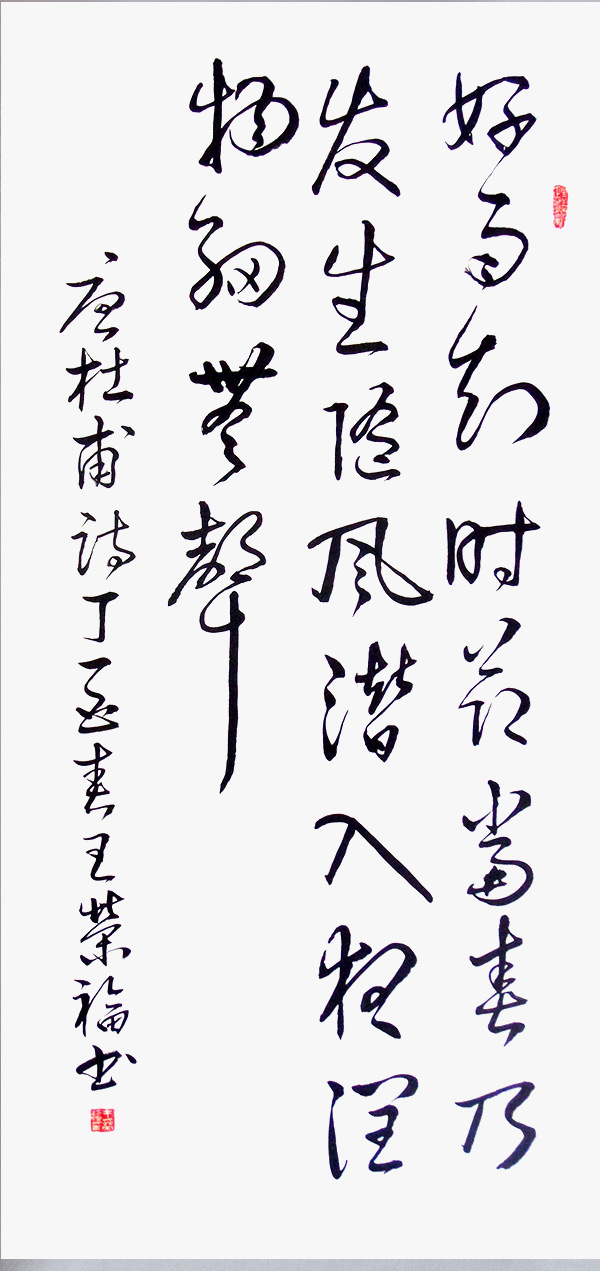 好雨知时节當春乃
发生随风潜入夜润
物细無聲
唐杜甫诗丁酉春王荣福书